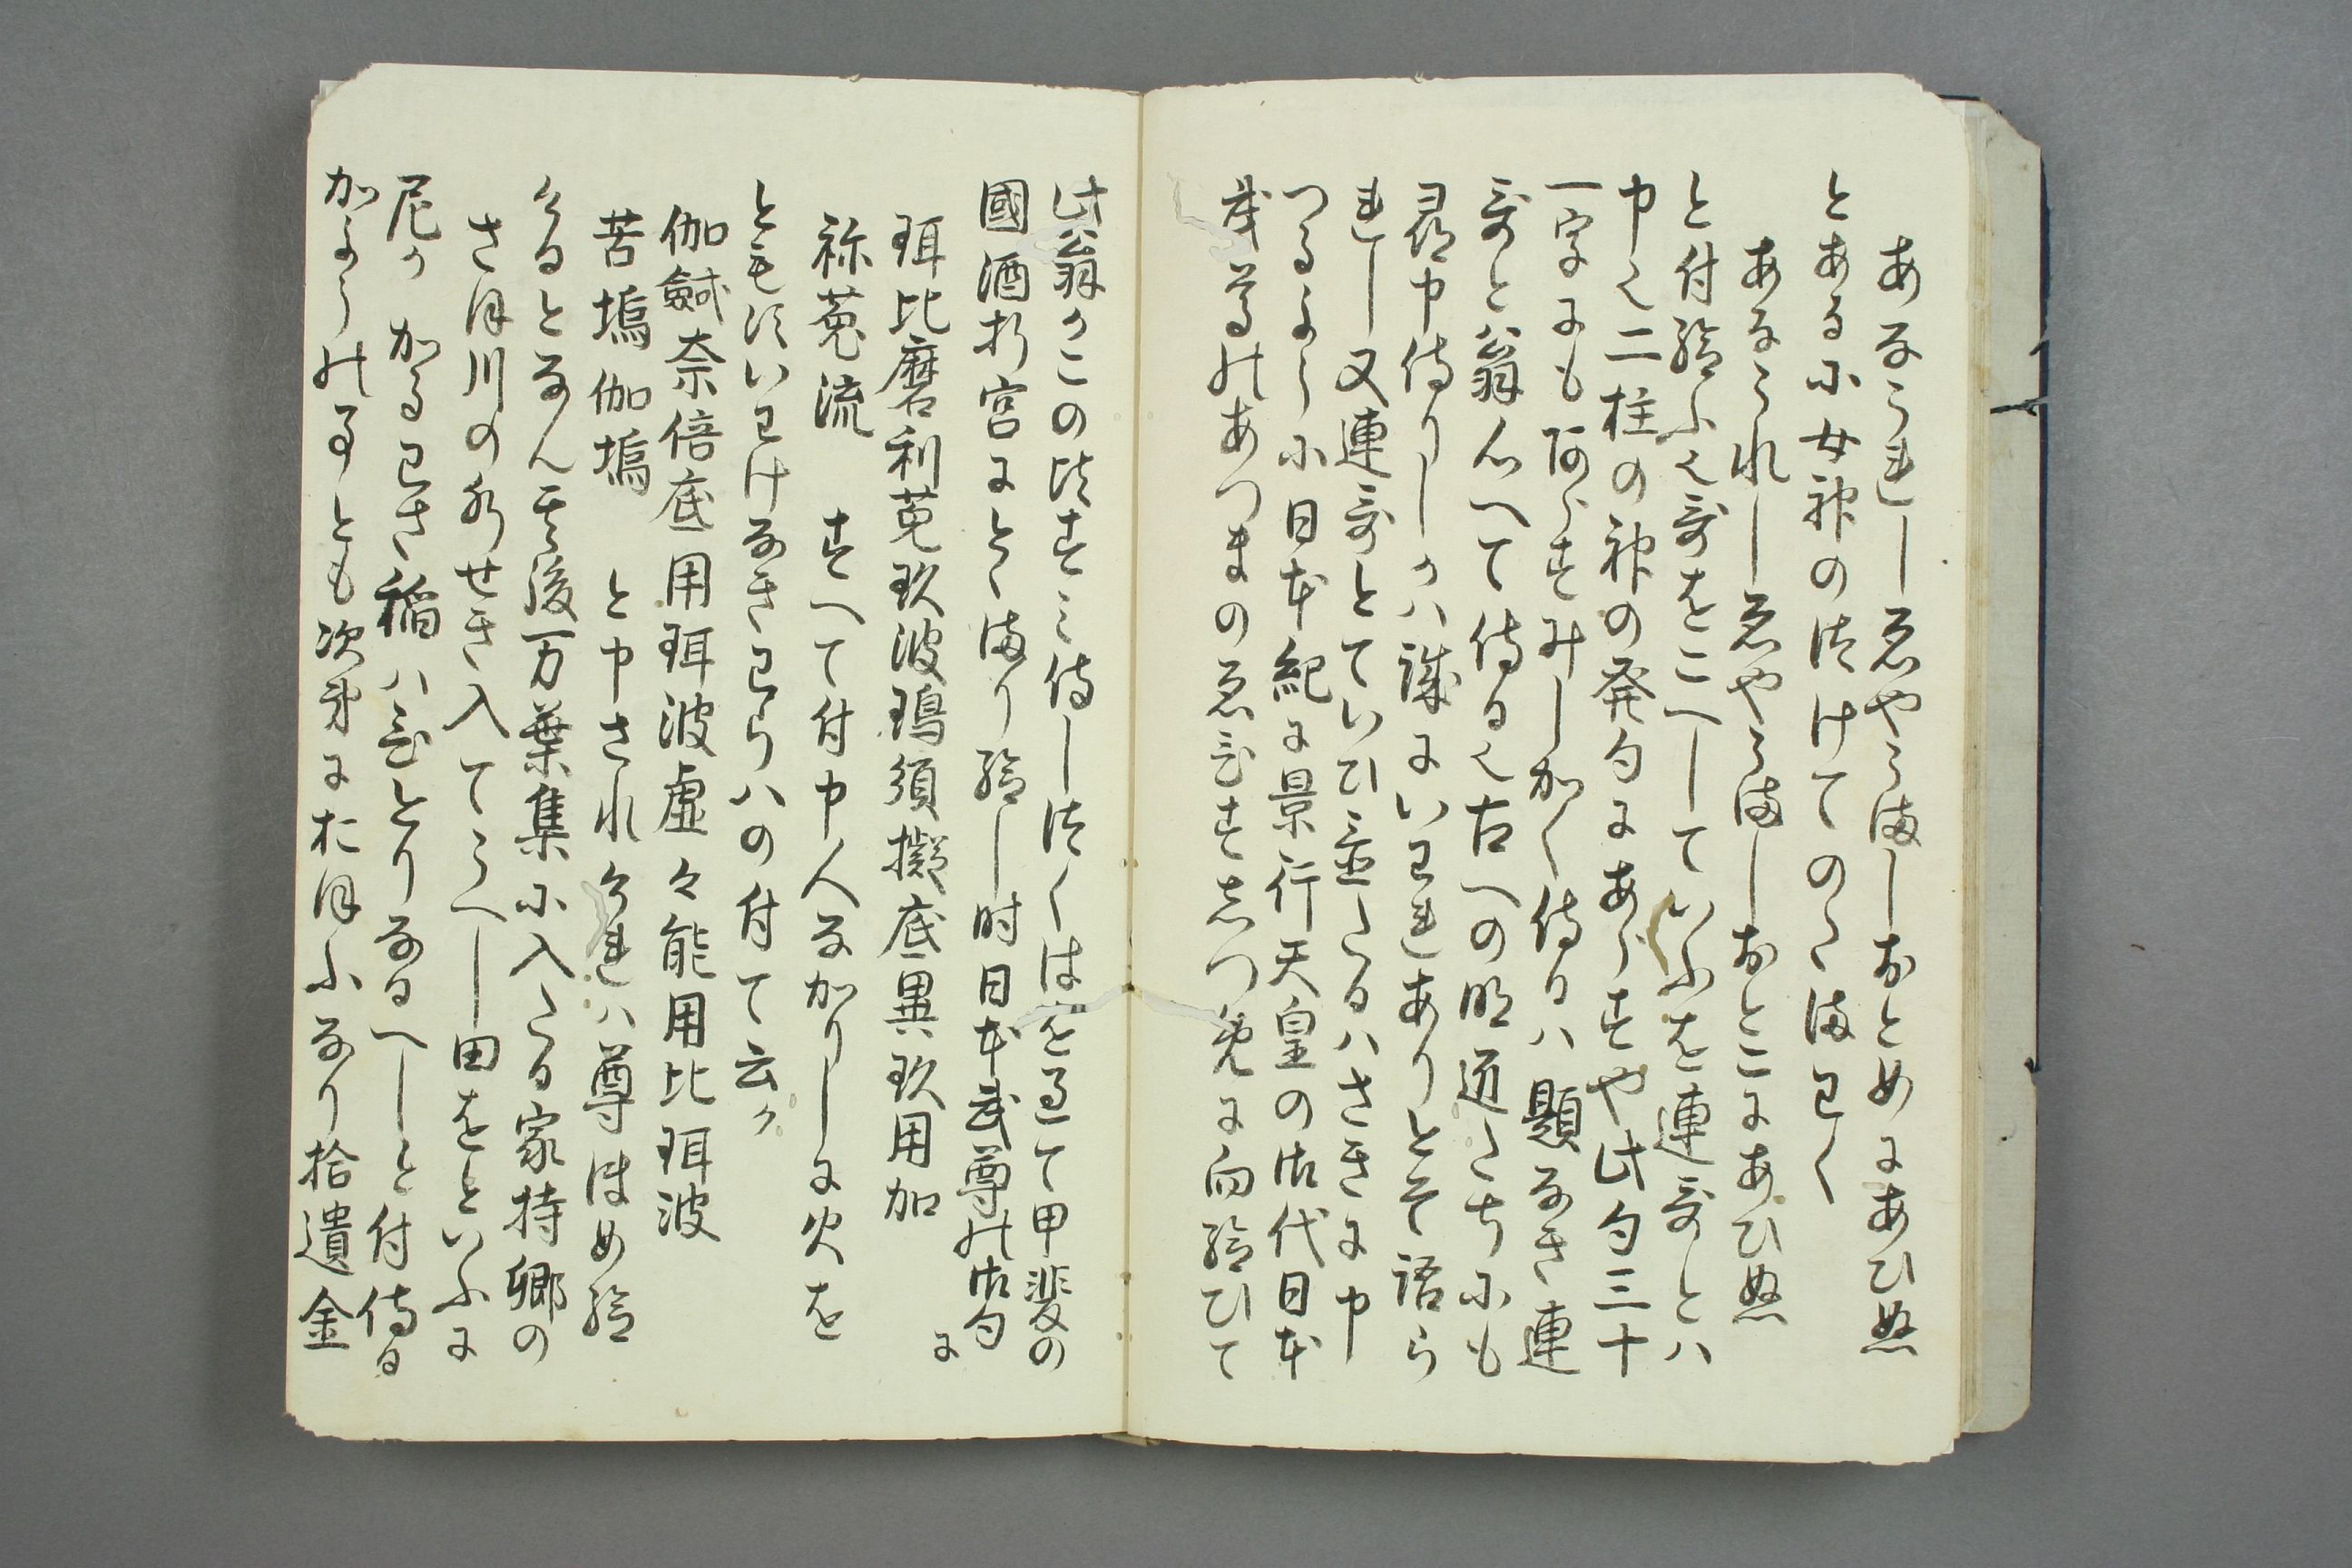 あなうれしゑやうましおとめにあひぬ
とある小女神のつけてのたまはく
あなうれしゑやうましおとこにあひぬ
と付給ふ哥をこへしていふを連哥とハ
申也二柱の神の発句にあらすや此句三十
一字にもあらすみしかく侍るハ題なき連
哥と翁心へて侍る也古への明道たちにも
尋申侍りしかハ誠にいはれありとそ語ら
れし又連哥とていひ置たるハさきに申
つるように日本紀に景行天皇の御代日本
武尊のあつまのゑひすしつめに向給ひて
此翁かこのつすミ侍しつくはを過て甲斐の
國酒折宮にとゝまり給し時日本武尊の御句に
珥比磨利菟玖波塢須擬底異玖用加
祢菟流　すへて付申人なかりしに火を
ともすいはけなきわらハの付て云か
伽鍼奈倍底用珥波虚々能用比珥波
苦塢伽塢　と申されけれハ尊ほめ給
けるとなん其後万葉集に入たる家持卿の
さほ川の水せき入てうへし田をといふに
尼か　かるわさ稲ハひとりなるへしと付侍る
かようの事とも次第におほふなり拾遺金